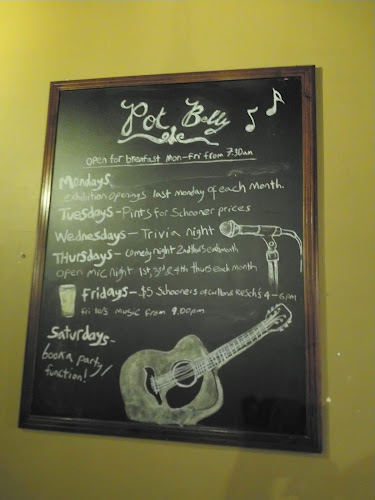 Pot Belly
Open for breakfast Mon-Fri from 7:30am
Mondays
exhibition openings last monday of each month.
Tuesdays - Pints for Schooner prices
Wednesdays - Trivia night
Thursdays - Comedy night 2nd thurs each month
Open mic night 1st, 3rd & 4th thurs each month
Fridays - $5 Schooners of carlton & Resch's 4-6pm
fri 10/5 music from 9.00pm
Saturdays -
book a party/
function!